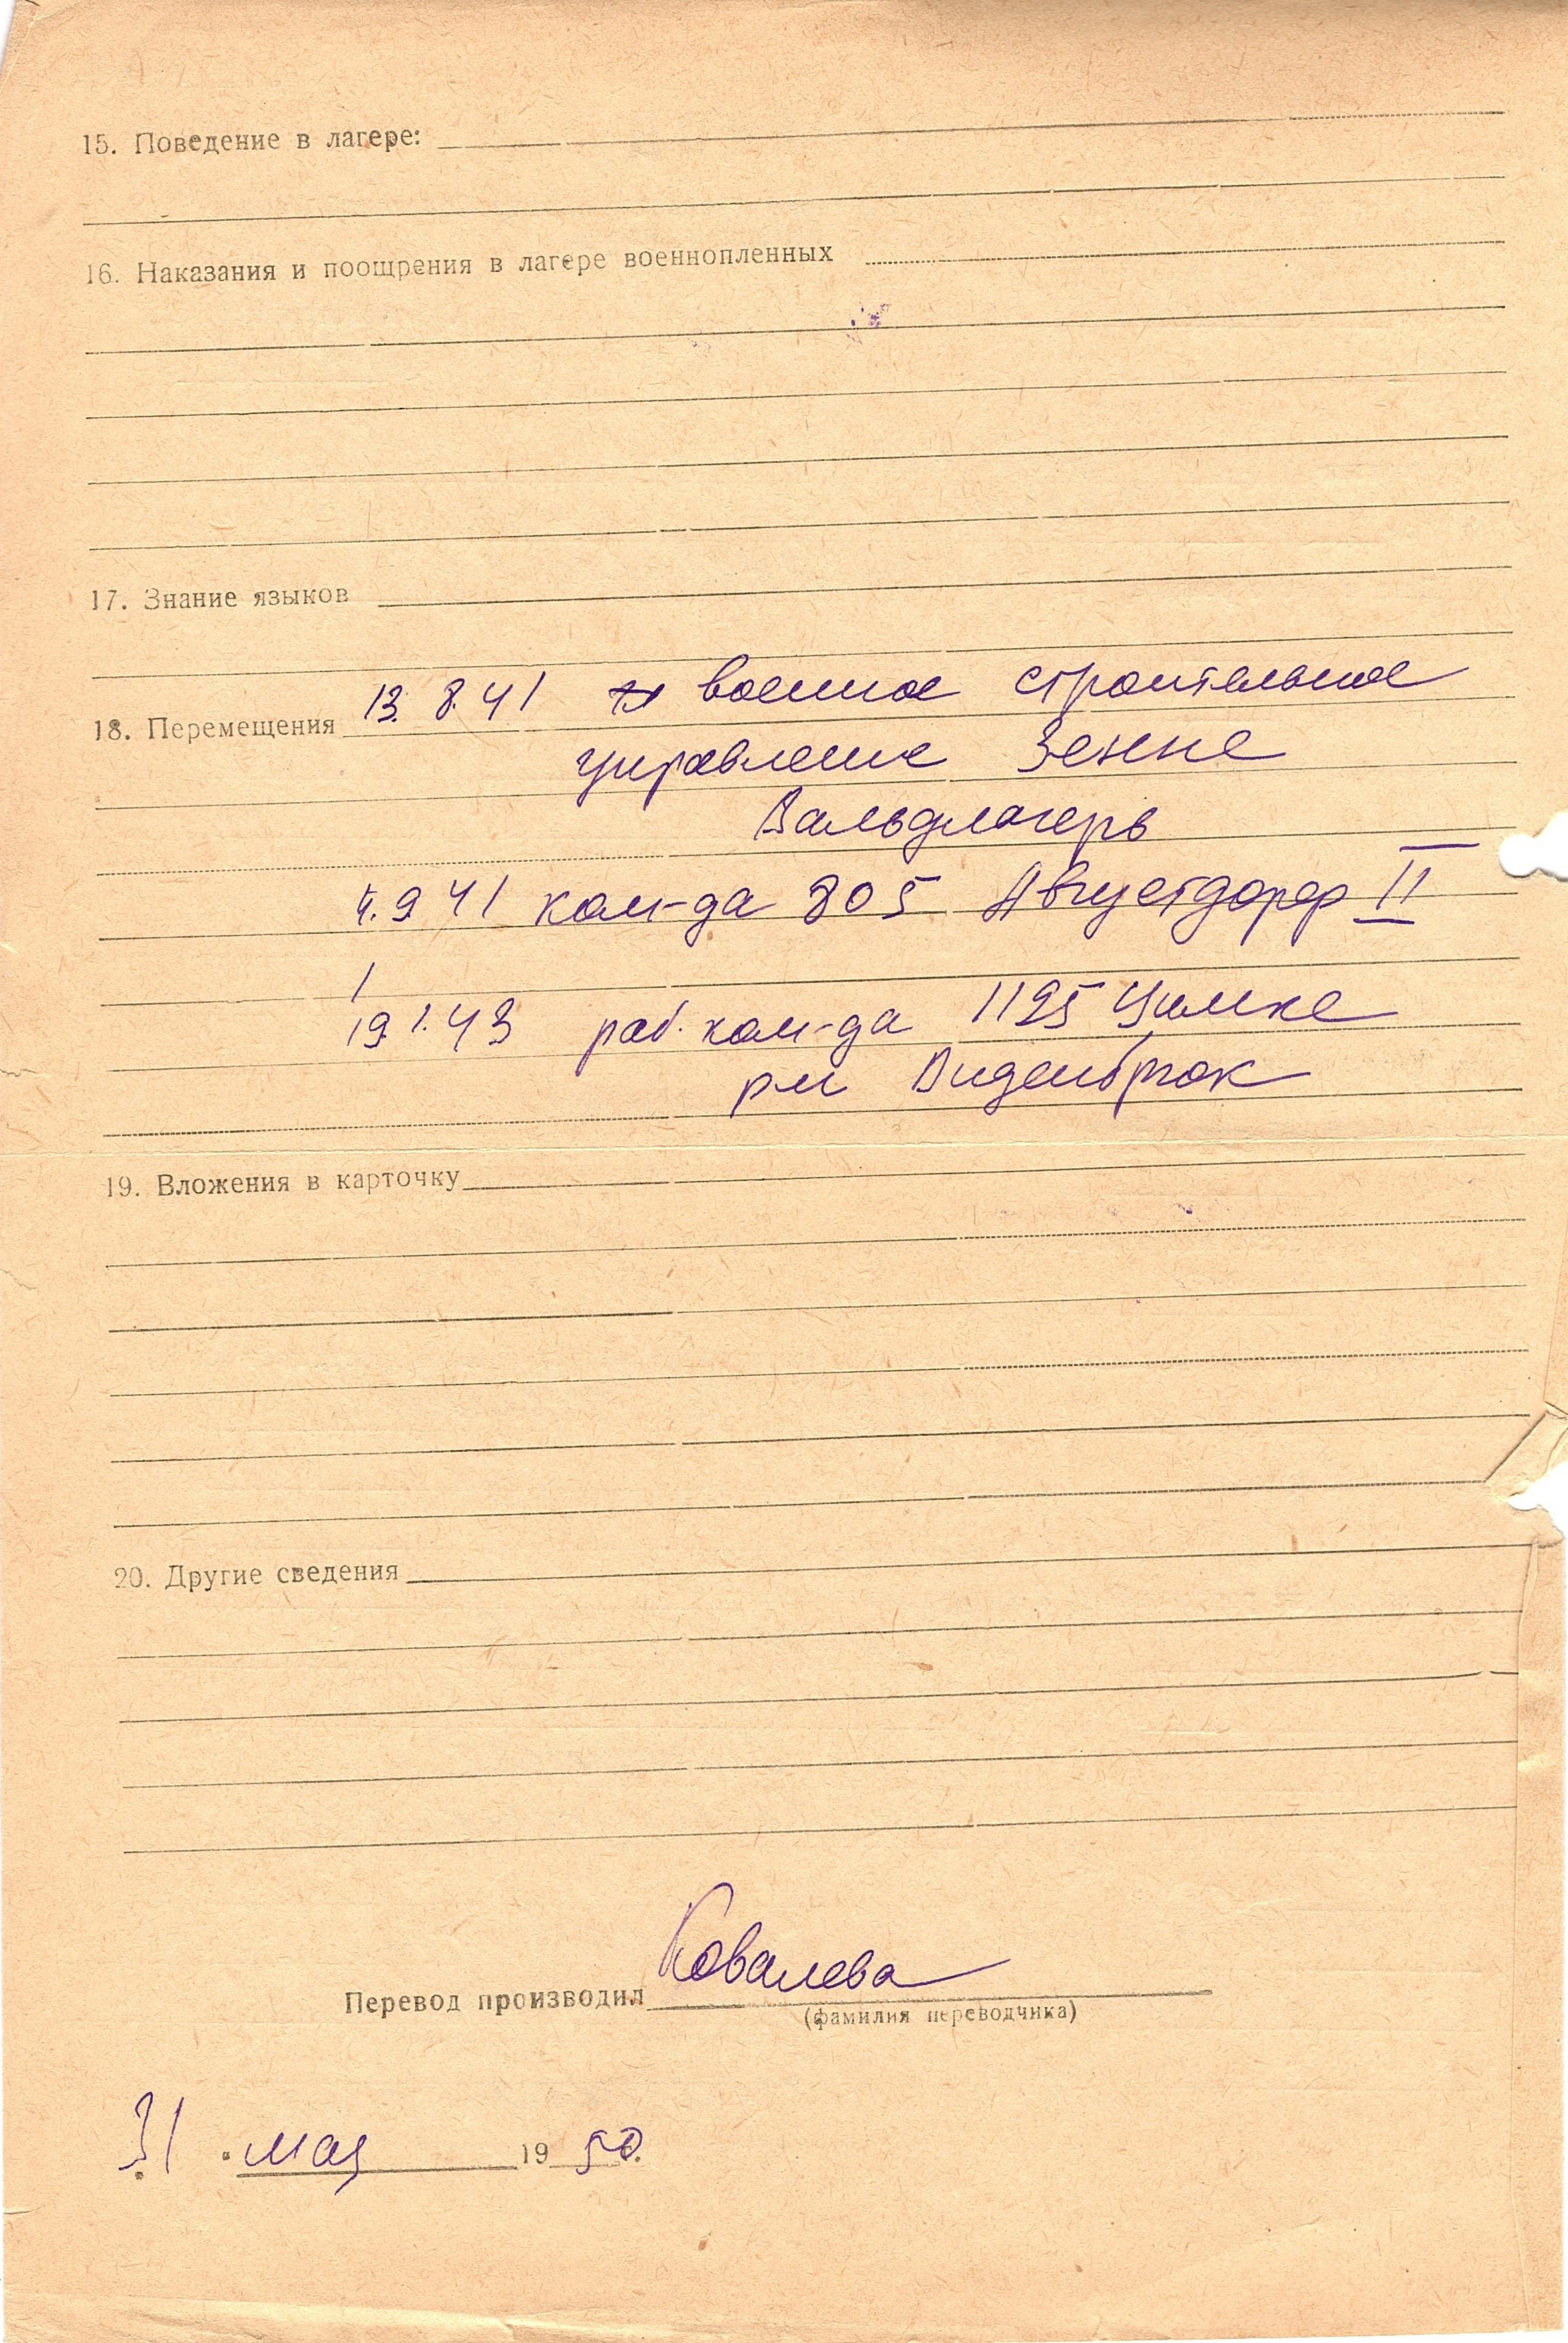 15. Поведение в лагере:
16. Наказания и поощрения в лагере военнопленных
17. Знание языков
18. Перемещения 13.8.41 военное строительное
управление Зенне
Вальдлагерь
4.9 41 ком-да 805 Августдорф II
19.1.43 раб. ком-да 1195
рн Виденбрюк
19. Вложения в карточку
20. Другие сведения
Перевод производил Ковалева
(фамилия переводчика)
31 мая 1950